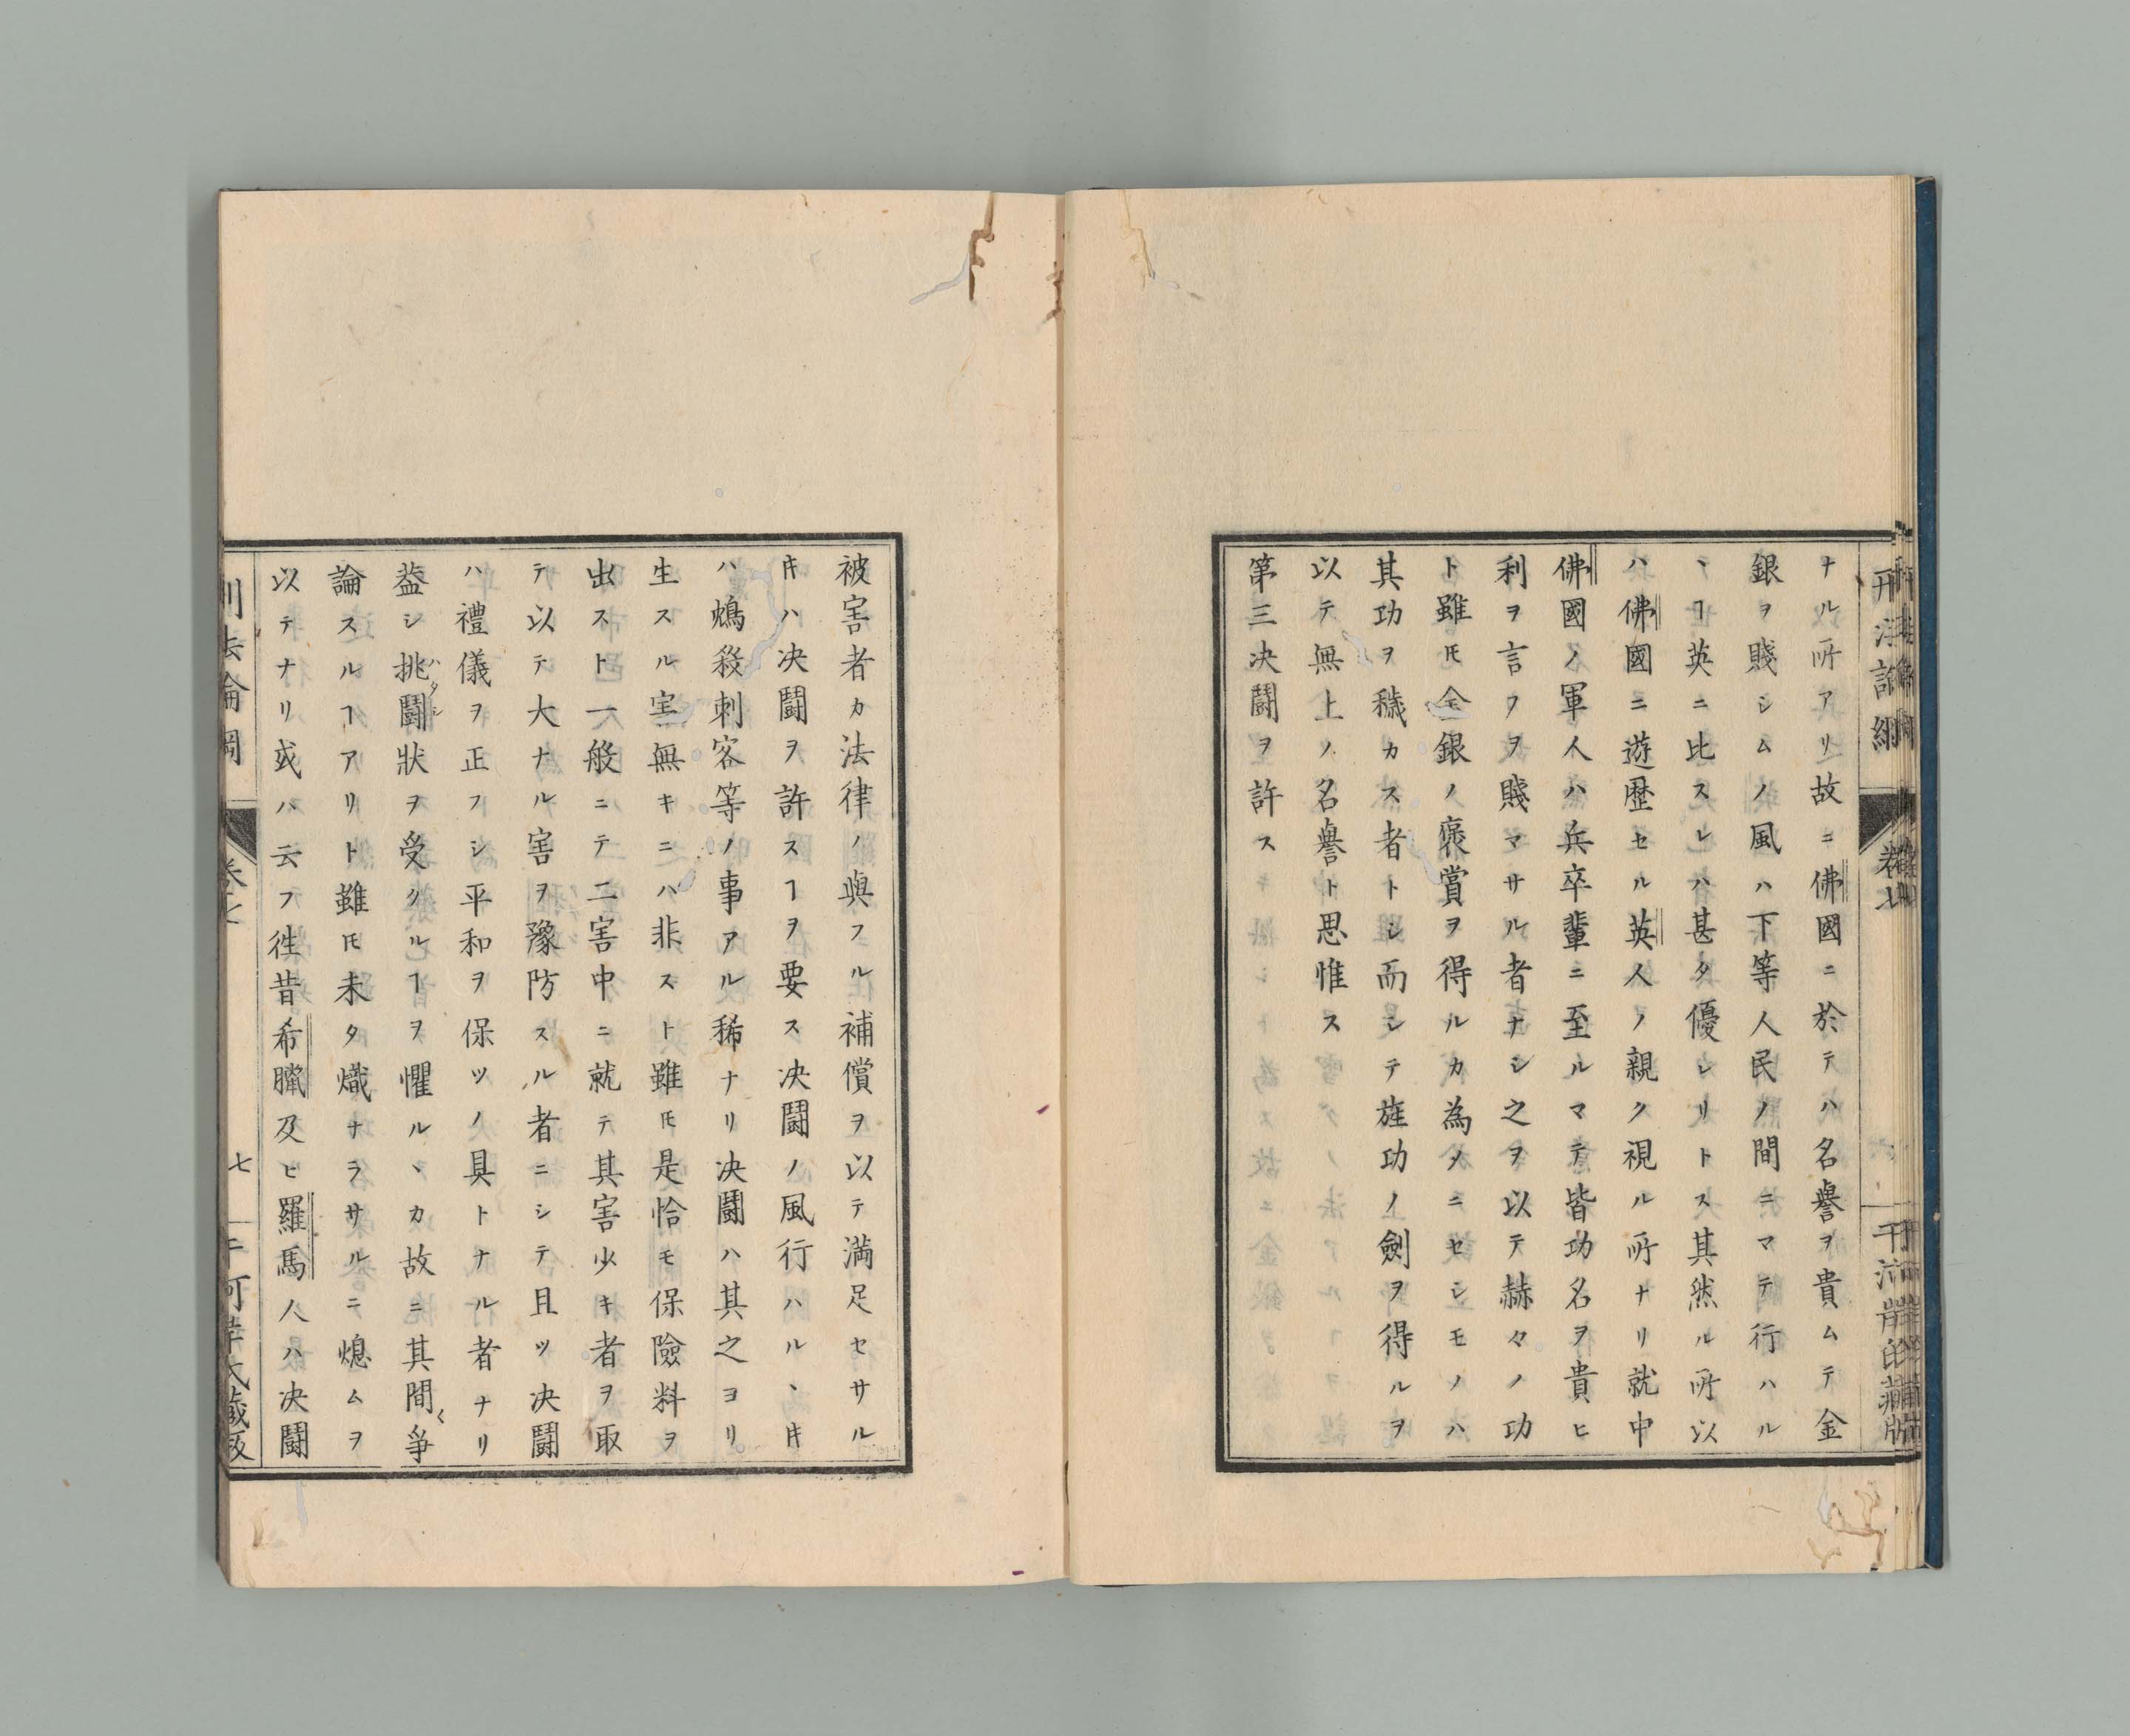 ナル所アリ故ニ佛國ニ於テハ名譽ヲ貴ムテ金
銀ヲ賤シムノ風ハ下等人民ノ間ニマテ行ハル
ヽヿ英ニ比スレハ甚タ優レリトス其然ル所以
ハ佛國ニ遊歷セル英人ノ親ク視ル所ナリ就中
佛國ノ軍人ハ兵卒輩ニ至ルマテ皆功名ヲ貴ヒ
利ヲ言フヲ賤マサル者ナシ之ヲ以テ赫々ノ功
ト雖𪜈金銀ノ褒賞ヲ得ルカ為メニセシモノハ
其功ヲ穢カス者トシ而シテ旌功ノ劍ヲ得ルヲ
以テ無上ノ名譽ト思惟ス
第三决鬪ヲ許ス
被害者カ法律ノ與フル補償ヲ以テ満足セサル
𪜈ハ决鬪ヲ許スヿヲ要ス决鬪ノ風行ハルヽ𪜈
ハ鴆殺刺客等ノ事アル稀ナリ决鬪ハ其之ヨリ
生スル害無キニハ非スト雖𪜈是恰モ保險料ヲ
出スト一般ニテ二害中ニ就テ其害少キ者ヲ取
テ以テ大ナル害ヲ豫防スル者ニシテ且ツ决鬪
ハ禮儀ヲ正フシ平和ヲ保ツノ具トナル者ナリ
葢シ挑鬪狀ヲ受クルヿヲ懼ルヽカ故ニ其間爭
ハタシ
く
論スルヿアリト雖𪜈未タ熾ナラサルニ熄ムヲ
以テナリ或ハ云フ徃昔希臘及ヒ羅馬人ハ决鬪
卷七
七